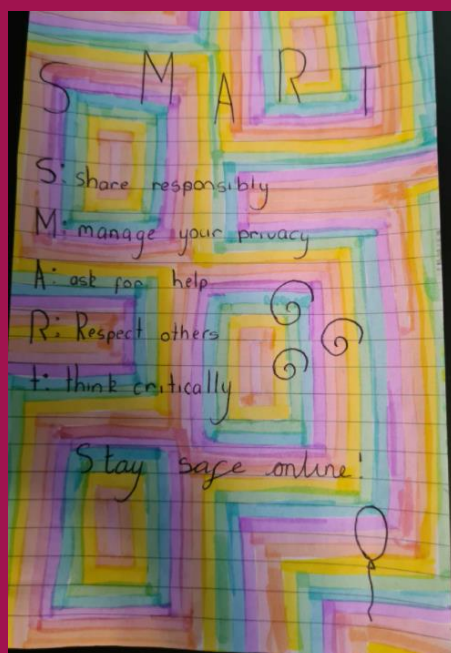 SMART
S: share responsibly
M: manage your privacy
A: ask for help
R: Respect others
t: think critically
Stay safe online!